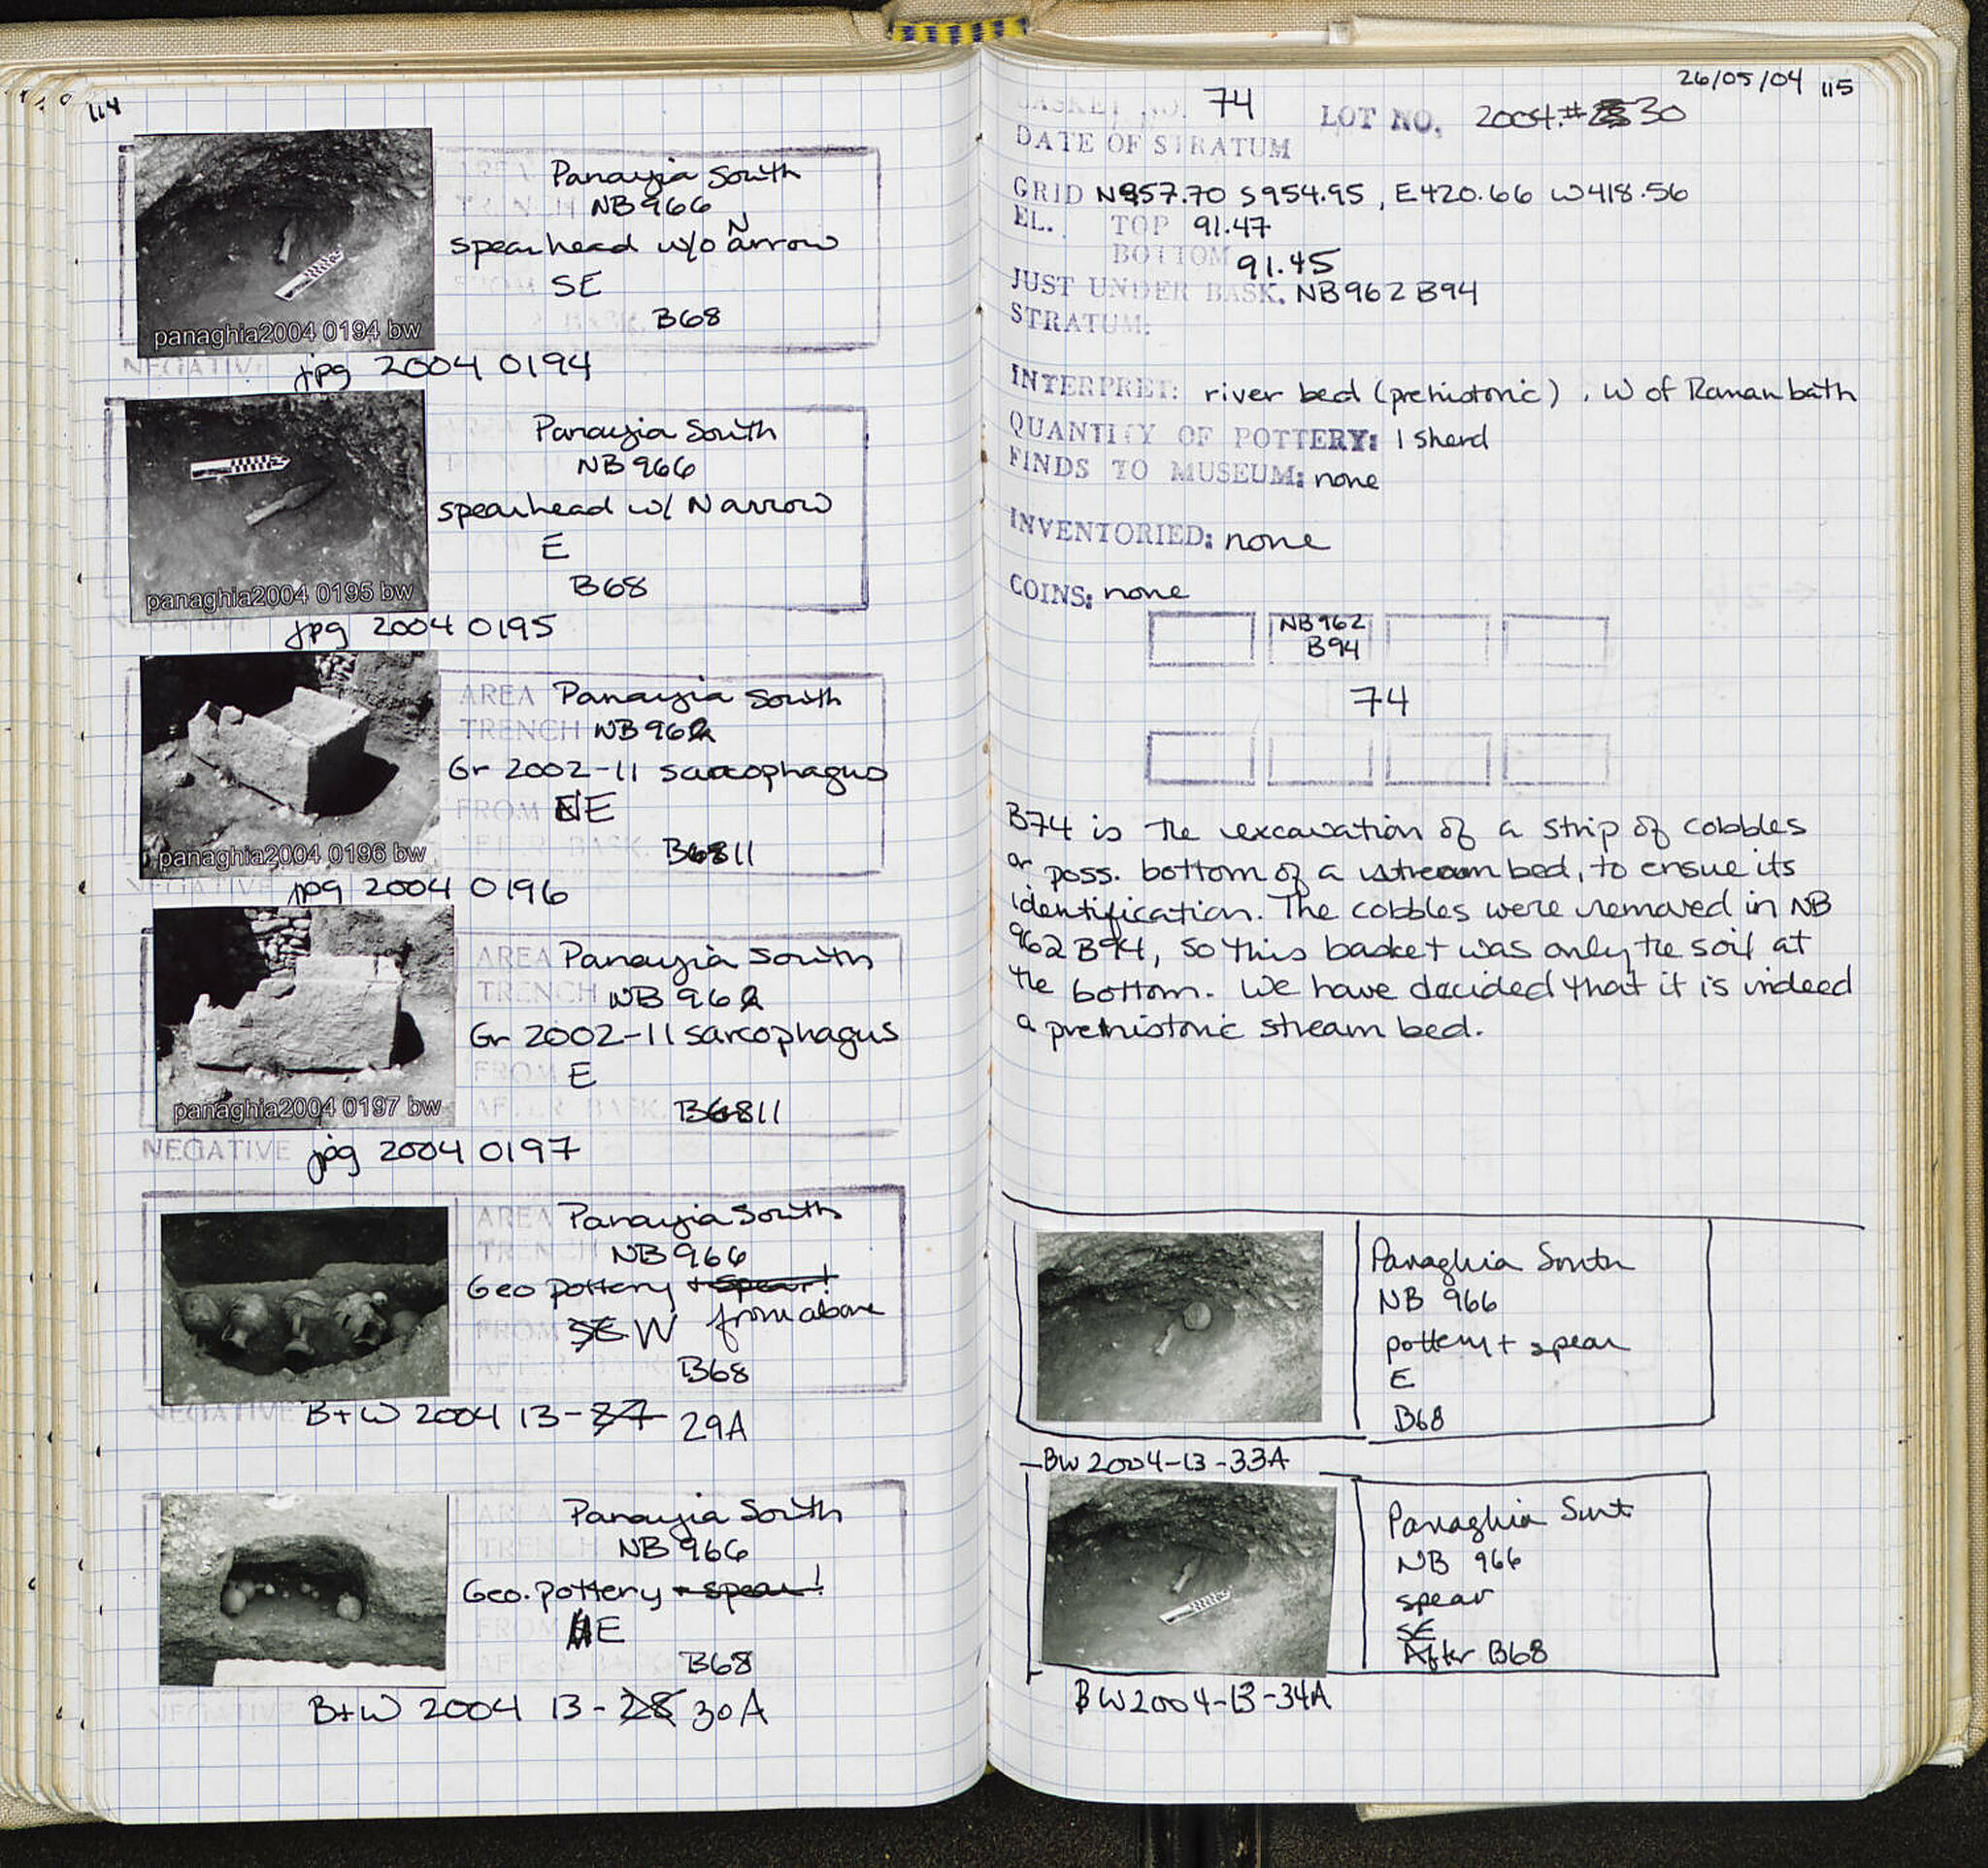 114
AREA Panayia South
TRENCH NB 966
spearhead w/o N arrow
FROM SE
BASK. B68
panaghia2004 0194 bw
NEGATIVE jpg 2004 0194
Panayia South
NB 966
spearhead w/ N arrow
E
B68
panaghia2004 0195 bw
NEGATIVE jpg 2004 0195
AREA Panayia South
TRENCH NB 962
Gr 2002-11 sarcophagus
FROM NE
AFTER BASK. B6811
panaghia2004 0196 bw
NEGATIVE jpg 2004 0196
AREA Panayia South
TRENCH NB 962
Gr 2002-11 sarcophagus
FROM E
AFTER BASK. B6811
panaghia2004 0197 bw
NEGATIVE jpg 2004 0197
AREA Panayia South
TRENCH NB 966
Geo pottery + spear!
FROM SE W from above
AFTER BASK B68
NEGATIVE B+W 2004 13-27 29A
AREA Panayia South
TRENCH NB 966
Geo. pottery + spear!
FROM NE
AFTER BASK B68
NEGATIVE B+W 2004 13-28 30A
26/05/04 115
BASKET NO. 74 LOT NO. 2004.#30
DATE OF STRATUM
GRID N957.70 S954.95, E420.66 W418.56
EL. TOP 91.47
BOTTOM 91.45
JUST UNDER BASK. NB962 B94
STRATUM:
INTERPRET: river bed (prehistoric). W of Roman bath
QUANTITY OF POTTERY: 1 sherd
FINDS TO MUSEUM: none
INVENTORIED: none
COINS: none
NB962
B94
74
B74 is the excavation of a strip of cobbles
or poss. bottom of a stream bed, to ensue its
identification. The cobbles were removed in NB
962 B94, so this basket was only the soil at
the bottom. We have decided that it is indeed
a prehistoric stream bed.
Panaghia South
NB 966
pottery + spear
E
B68
BW 2004-13-33A
Panaghia Sout
NB 966
spear
SE
After B68
BW2004-13-34A